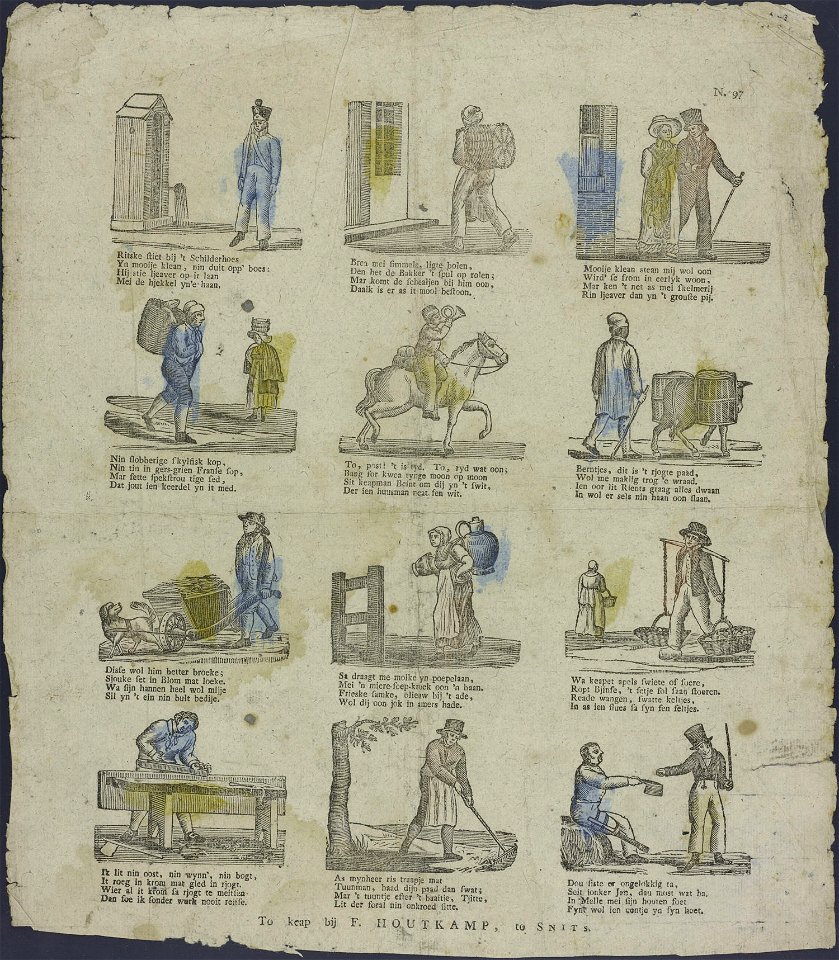 N. 97
Ritske stiet bij 't Schilderhoes
Yn mooije klean, nin duit opp' boes:
Hij stie ljeaver op it laan
Mei de hjekkel yn'e haan.
Brea mei simmels, ligte bolen,
Den het de Bakker 't spul op rolen;
Mar komt de schealjen bij him oon,
Daalk is er as it mool bestoon.
Mooije klean stean mij wol oon
Wird' se from in eerlyk woon,
Mar ken 't net as mei skelmerij
Rin ljeaver dan yn 't grouste pij.
Nin slobberige skylfisk kop,
Nin tin in gers-grien Franse sop,
Mar fette spekstrou tige sed,
Dat jout sen keerdel yn it med.
To, post! 't is tyd. To, tyd wat oon;
Baang for kwea tynge moon op moon
Sit keapman Beint om dij yn 't swit,
Der sen huusman neat sen wit.
Berntjes, dit is 't rjogte paad,
Wol me maklig trog 'e wraad.
Ien oor lit Rients graag alles dwaan
In wol er sels nin haan oon slaan.
Disse wol him better broeke;
Sjouke set in Blom mat loeke.
Wa sijn hannen heel wol mije
Sil yn 't ein nin bult bedije.
Sa draagt me molke yn poepelaan,
Mei 'n miere-soep-kruek oon 'n baan.
Frieske famke, oljeuw bij 't ade,
Wol dij oon jok in amers hade.
Wa keapet apels swiete of suere,
Ropt Bjinse, 't setje sol saan sloeren.
Reade wangen, swatte keltjes,
In as ien slues sa syn sen feltjes.
Ik lit nin oost, nin wynn', nin bogt,
It roeg in krom mat gled in rjogt.
Wier al it krom sa rjogt te meitsen
Dan soe ik sonder wurk nooit reitse.
As mynheer ris traapje mat
Tuunman, haad dijn paad dan swat;
Mar 't tuuntje efter 't huussie, Tjitte,
Lit der foral nin onkroed sitte.
Dou siste er ongelokkig ta,
Seit jonker Jan, dou most wat ha,
In Melle mei sijn houten foet
Fynt wol ien centje yn syn hoet.
To keap bij F. HOUTKAMP, to SNITS.